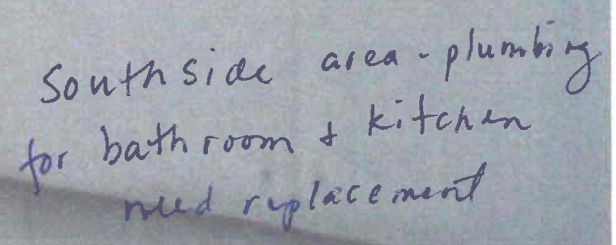 Southside area - plumbing
for bathroom & kitchen
need replacement